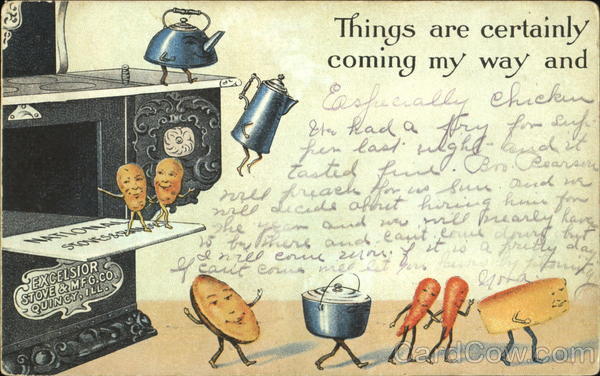 Things are certainly
coming my way and
Easpecially chicken
We had a fry for sup-
per last night and it
tasted fine. Bro. Pearson
will preach for us Sun and we
will decide about hiring him for
the year and we will nearly have
to be there and can't come down but
I will come Mon. if it is a pretty day
If cant come will let you know
NATIONAL
STOVES
EXCELSIOR
STOVE & MFG. CO.
QUINCY, ILL.
CardCow.com